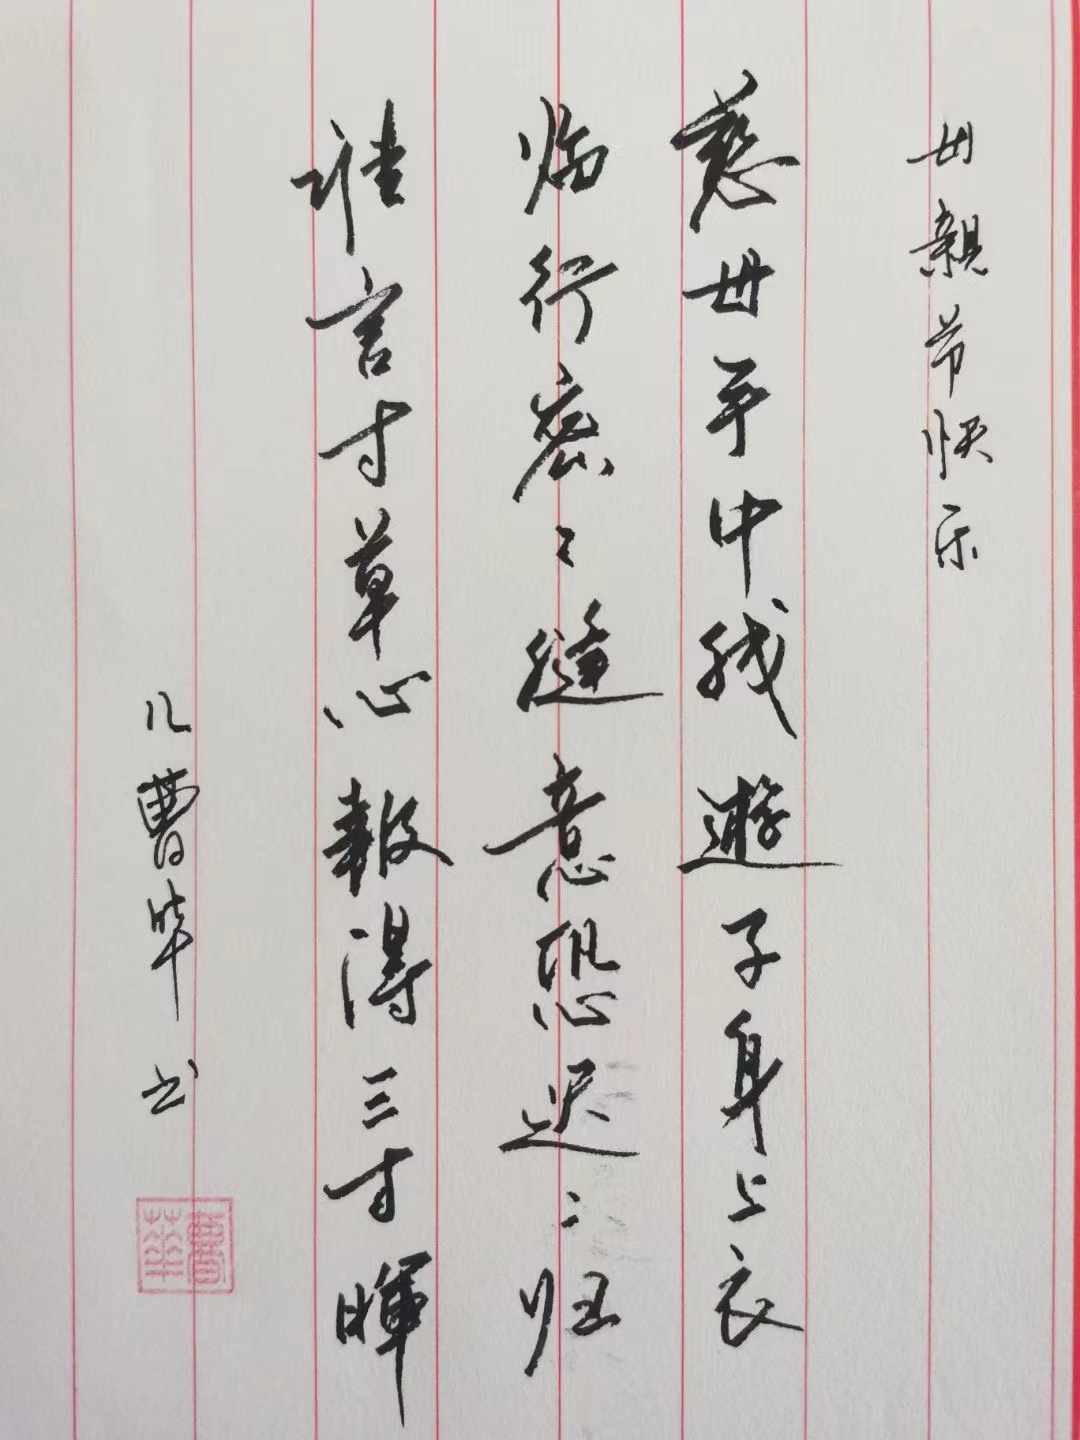 母親节快乐
慈母手中线遊子身上衣
临行密〻缝意恐迟〻归
谁言寸草心報得三寸暉
儿曹华书
曹華